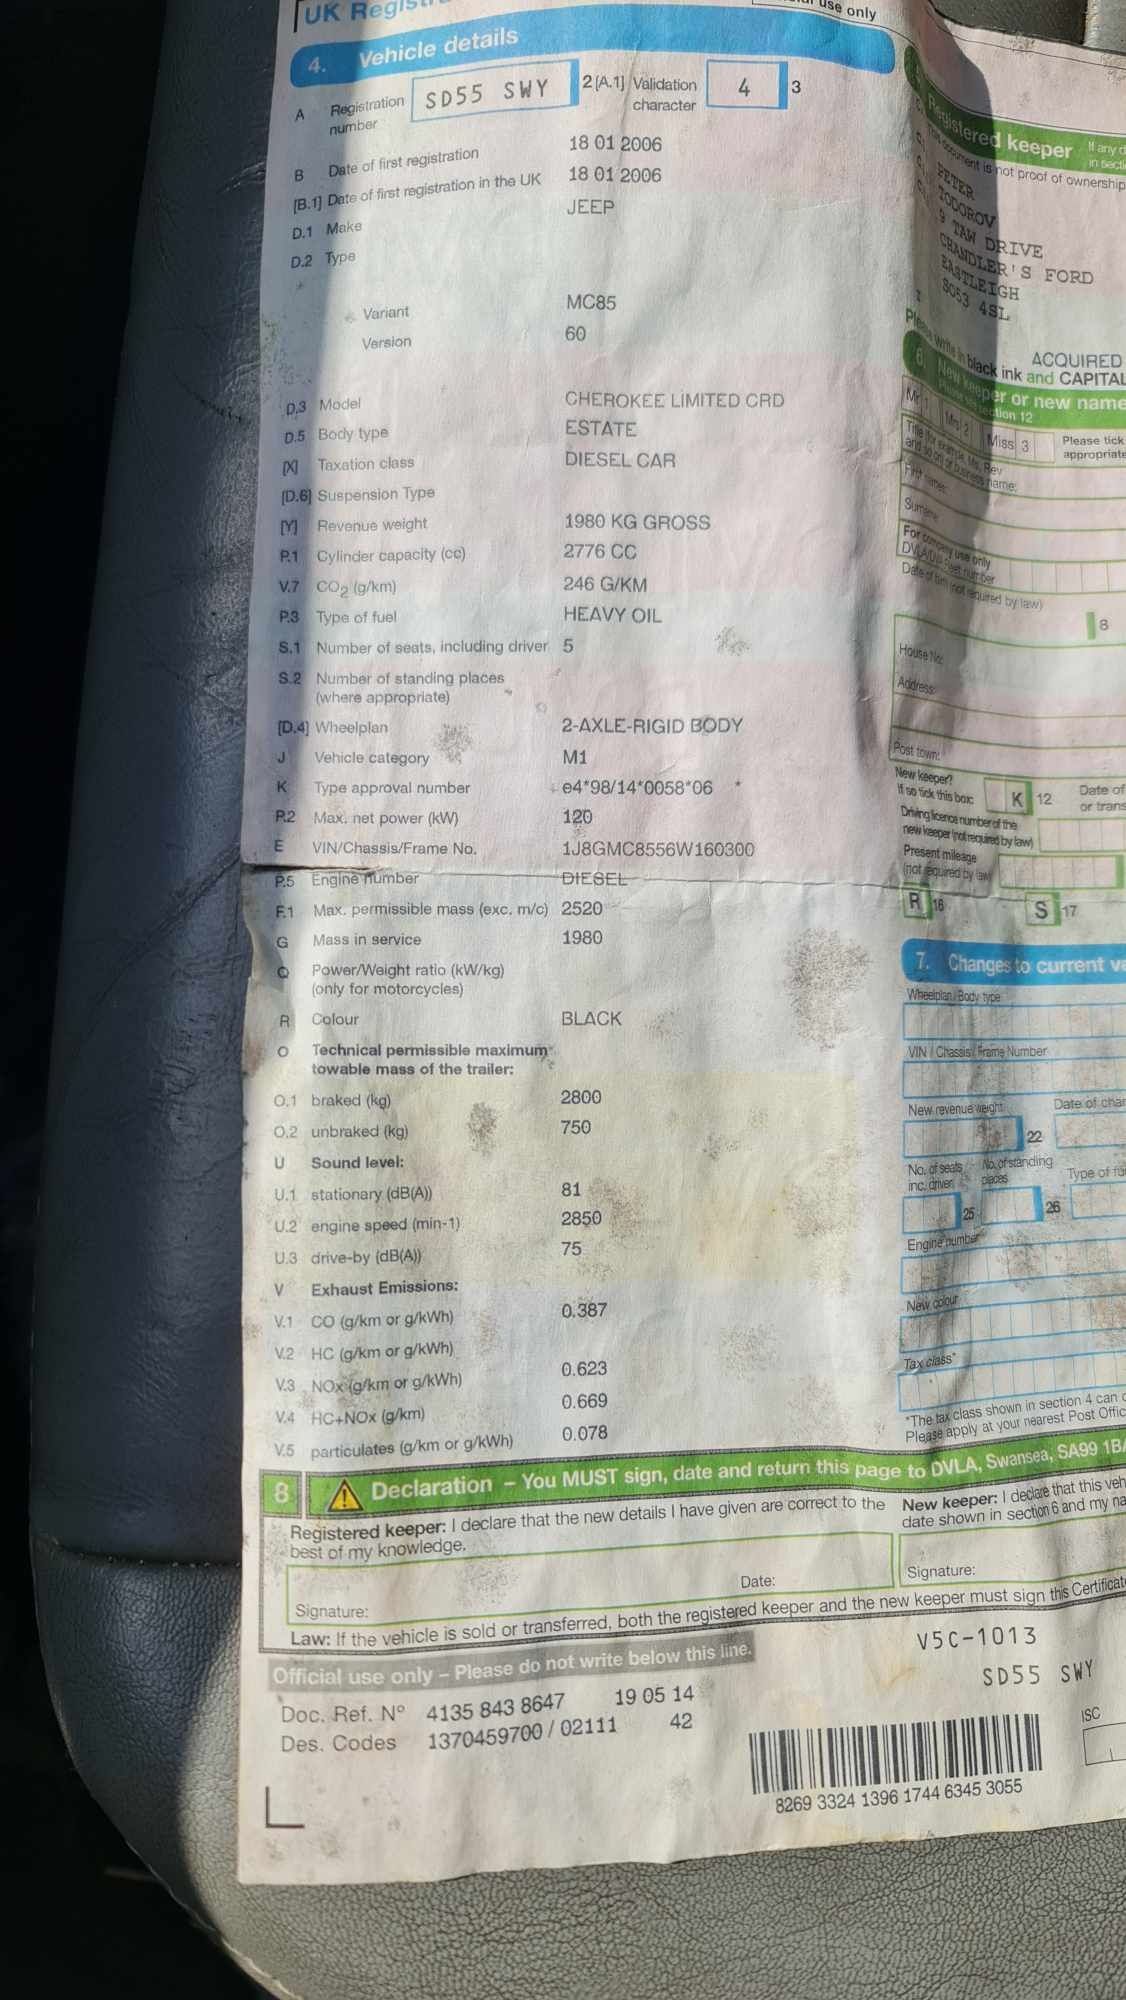 UK Regist
use only
4. Vehicle details
A Registration number SD55 SWY 2 [A.1] Validation character 4 3
B Date of first registration 18 01 2006
[B.1] Date of first registration in the UK 18 01 2006
D.1 Make JEEP
D.2 Type
Variant MC85
Version 60
D.3 Model CHEROKEE LIMITED CRD
D.5 Body type ESTATE
[X] Taxation class DIESEL CAR
[D.6] Suspension Type
[Y] Revenue weight 1980 KG GROSS
P.1 Cylinder capacity (cc) 2776 CC
V.7 CO2 (g/km) 246 G/KM
P.3 Type of fuel HEAVY OIL
S.1 Number of seats, including driver 5
S.2 Number of standing places
(where appropriate)
[D.4] Wheelplan 2-AXLE-RIGID BODY
J Vehicle category M1
K Type approval number e4*98/14*0058*06 *
P.2 Max. net power (kW) 120
E VIN/Chassis/Frame No. 1J8GMC8556W160300
P.5 Engine number DIESEL
F.1 Max. permissible mass (exc. m/c) 2520
G Mass in service 1980
Q Power/Weight ratio (kW/kg)
(only for motorcycles)
R Colour BLACK
O Technical permissible maximum
towable mass of the trailer:
O.1 braked (kg) 2800
O.2 unbraked (kg) 750
U Sound level:
U.1 stationary (dB(A)) 81
U.2 engine speed (min-1) 2850
U.3 drive-by (dB(A)) 75
V Exhaust Emissions:
V.1 CO (g/km or g/kWh) 0.387
V.2 HC (g/km or g/kWh)
V.3 NOx (g/km or g/kWh) 0.623
V.4 HC+NOx (g/km) 0.669
V.5 particulates (g/km or g/kWh) 0.078
Registered keeper
If any d
in secti
document is not proof of ownership
PETER
TODOROV
9 TAW DRIVE
CHANDLER'S FORD
EASTLEIGH
SO53 4SL
ACQUIRED
Please write in black ink and CAPITAL
6. New keeper or new name
section 12
Mr 1 Mrs 2 Miss 3 Please tick
appropriate
Title (for example, Ms, Rev
and so on) or business name:
First name:
Surname:
For company use only
DVLA/DVA fleet number
Date of birth (not required by law)
8
House No:
Address:
Post town:
New keeper?
If so tick this box: K 12 Date of
or trans
Driving licence number of the
new keeper (not required by law)
Present mileage
(not required by law)
R 16 S 17
7. Changes to current ve
Wheelplan/Body type
VIN / Chassis / Frame Number
New revenue weight 22 Date of chan
No. of seats inc. driver 25 No. of standing places 26 Type of fu
Engine number
New colour
Tax class*
*The tax class shown in section 4 can
Please apply at your nearest Post Offic
8 Declaration – You MUST sign, date and return this page to DVLA, Swansea, SA99 1BA
Registered keeper: I declare that the new details I have given are correct to the
best of my knowledge.
Signature: Date:
New keeper: I declare that this veh
date shown in section 6 and my na
Signature:
Law: If the vehicle is sold or transferred, both the registered keeper and the new keeper must sign this Certificate
Official use only – Please do not write below this line.
Doc. Ref. Nº 4135 843 8647 19 05 14
Des. Codes 1370459700 / 02111 42
V5C-1013
SD55 SWY
ISC
8269 3324 1396 1744 6345 3055